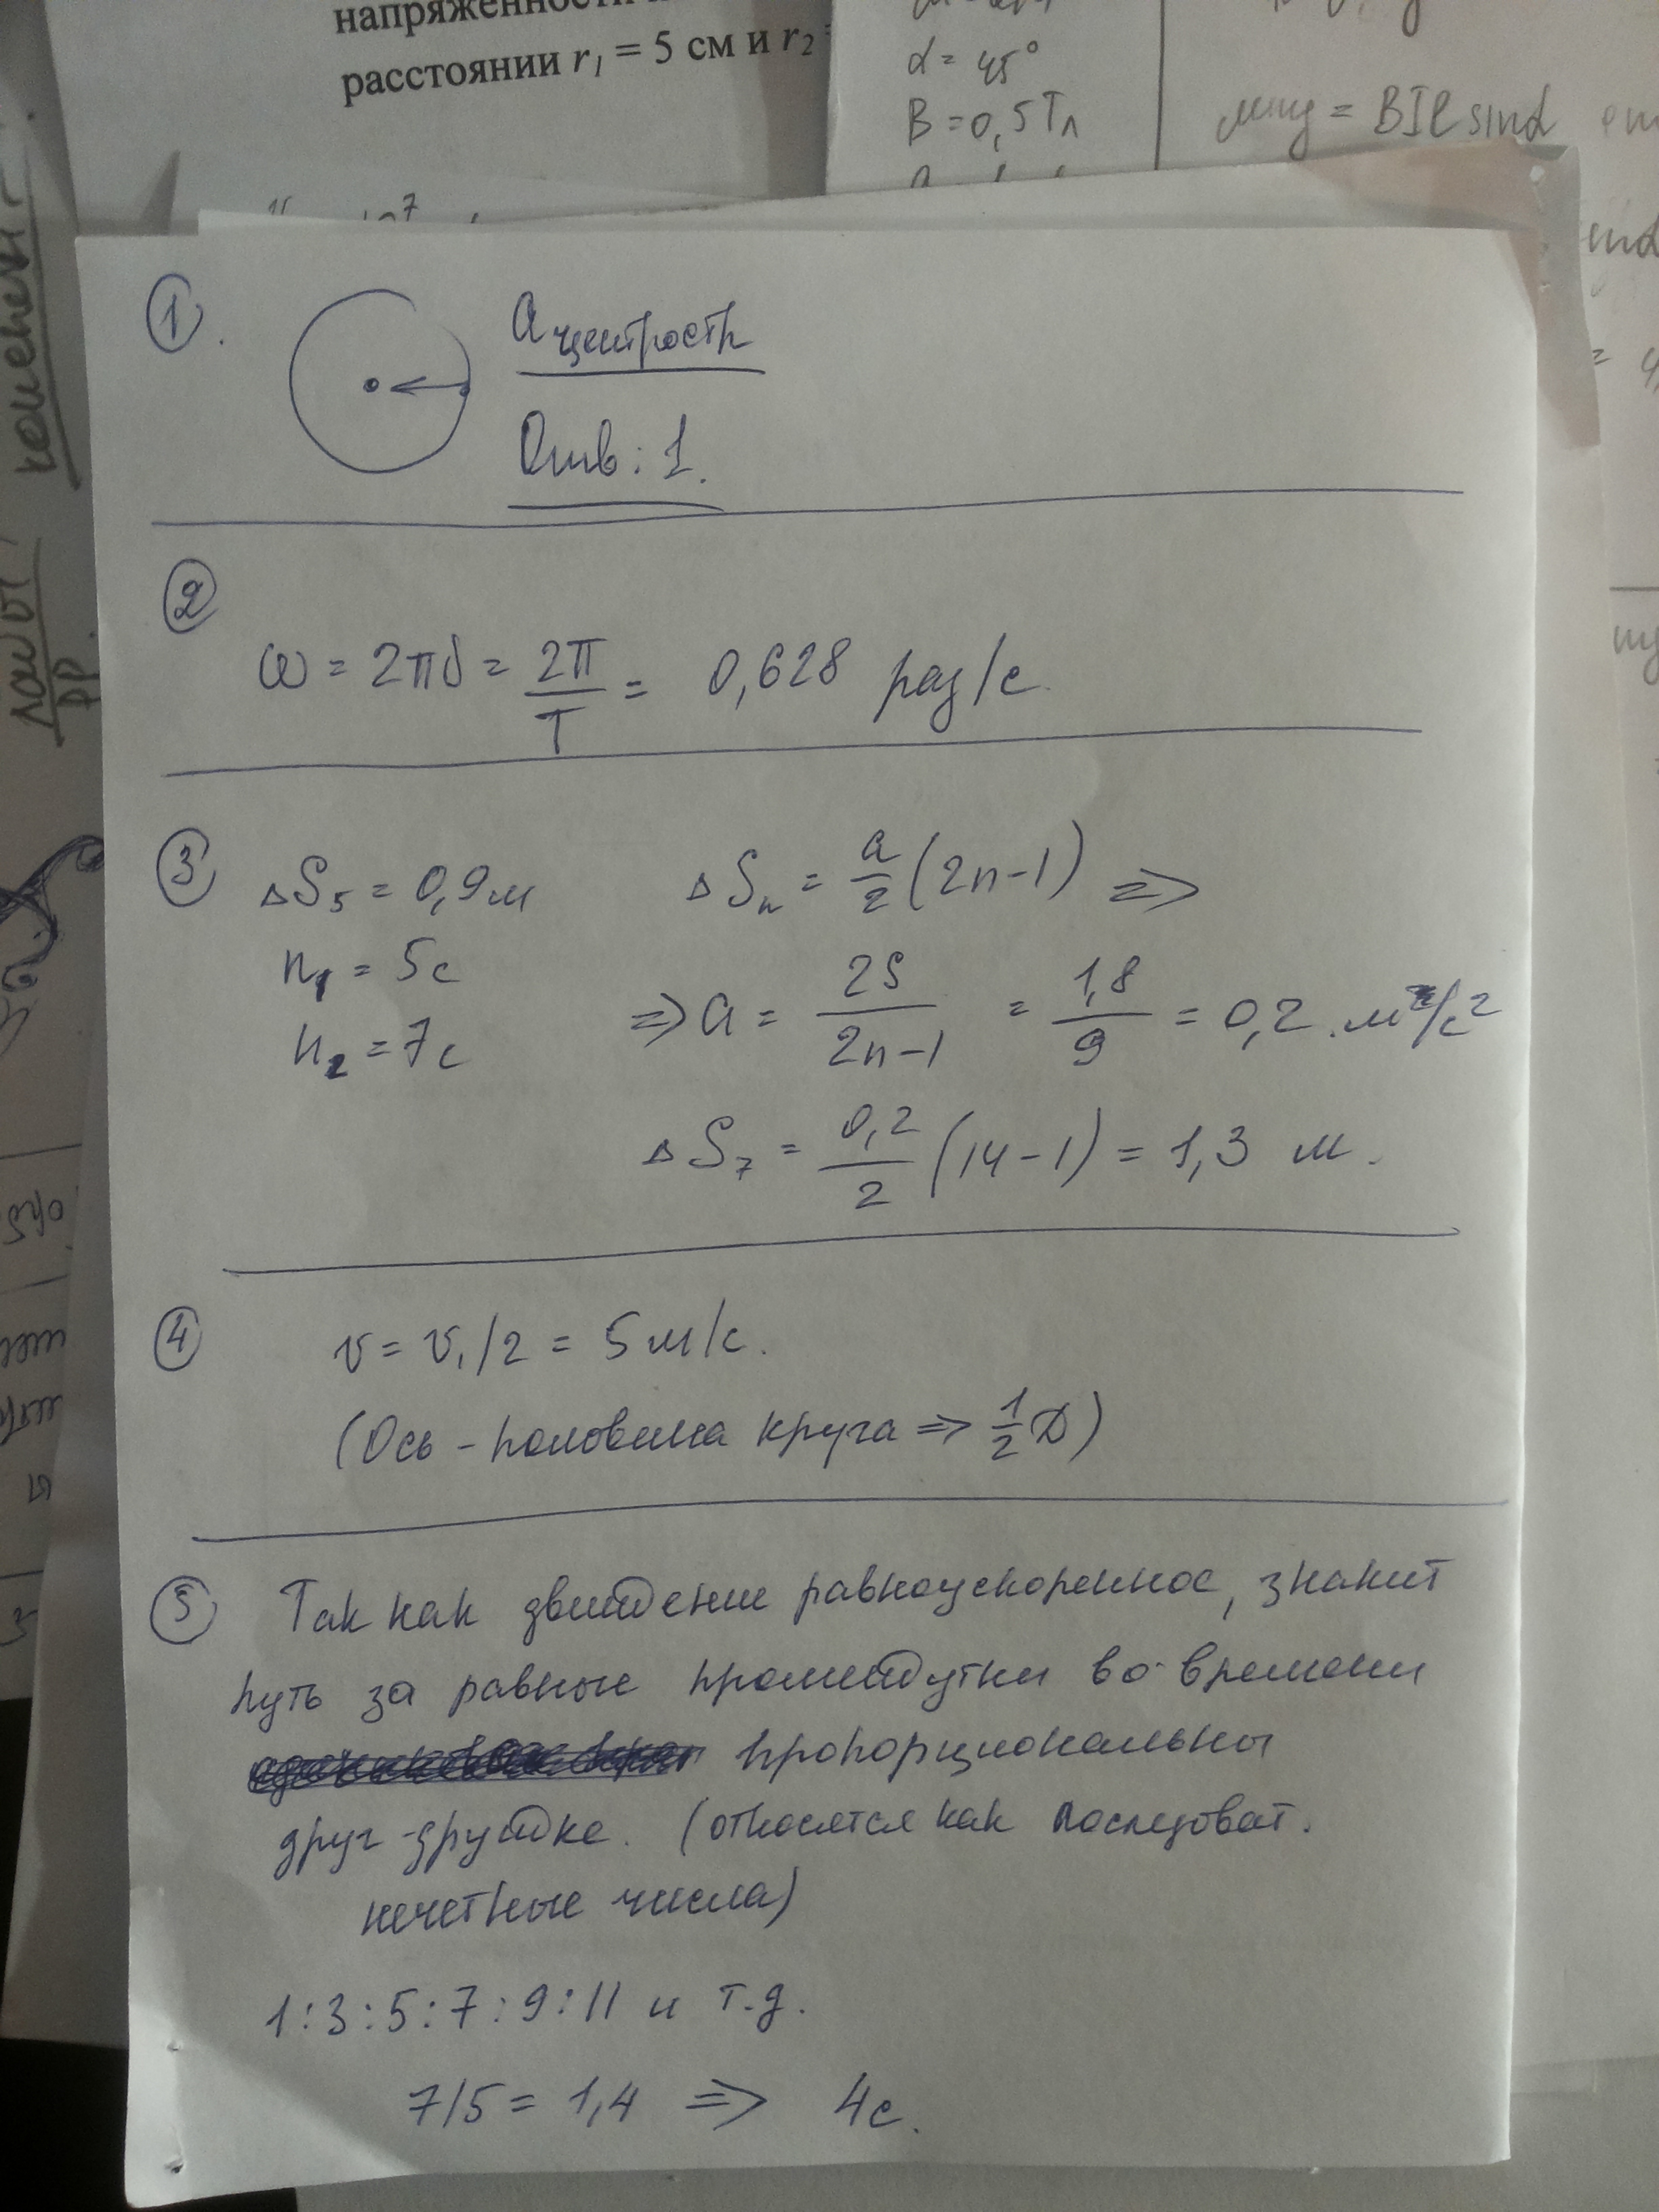 расстоянии r₁ = 5 см и r₂
α = 45°
B = 0,5 Тл
= BIl sinα
①.
a центростр
Отв: 1.
②
ω = 2πν = 2π/T = 0,628 рад/с.
③ ΔS₅ = 0,9м
n₁ = 5с
n₂ = 7с
ΔSₙ = a/2 (2n-1) =>
=> a = 2S/(2n-1) = 1,8/9 = 0,2 м/с²
ΔS₇ = 0,2/2 (14-1) = 1,3 м.
④ v = v₁/2 = 5 м/с.
(Ось - половина круга => 1/2 D)
⑤ Так как движение равноускоренное, значит
путь за равные промежутки во времени
пропорциональны
друг-дружке. (относятся как последоват.
нечетные числа)
1:3:5:7:9:11 и т.д.
7/5 = 1,4 => 4с.